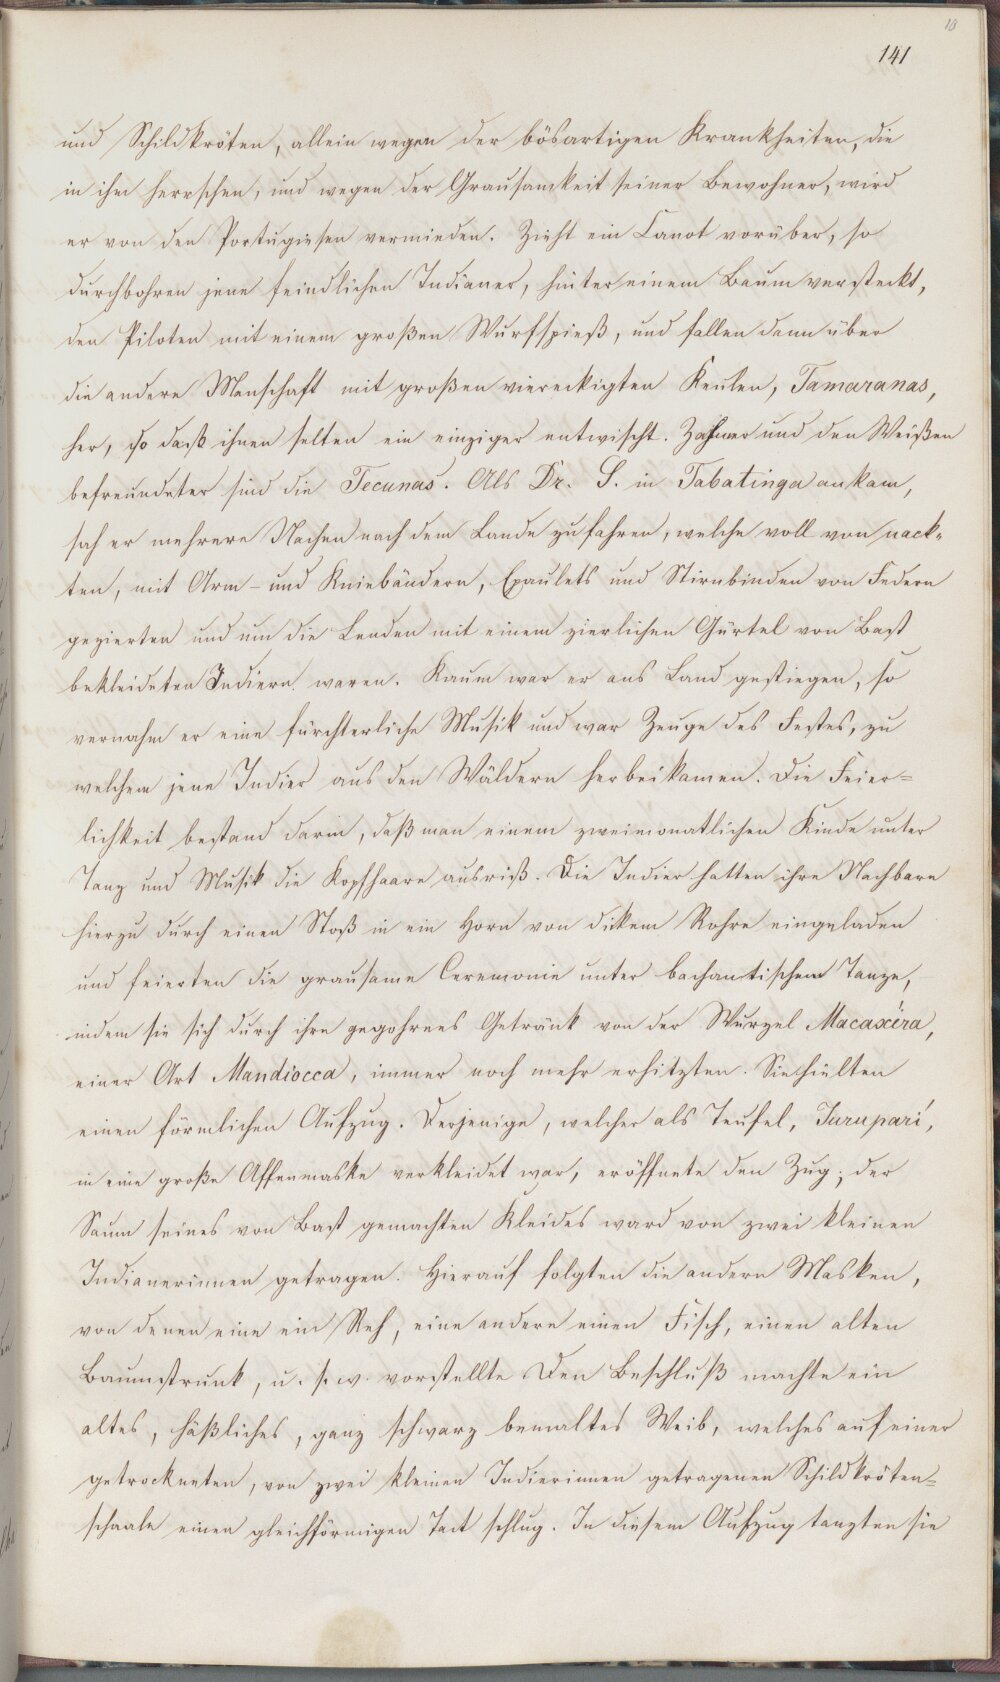 18
141
und Schildkröten, allein wegen der bösartigen Krankheiten, die
in ihm herrschen, und wegen der Grausamkeit seiner Bewohner, wird
er von den Portugiesen vermieden. Zieht ein Canot vorüber, so
durchbohren jene feindlichen Indianer, hinter einem Baum versteckt,
den Piloten mit einem großen Wurfspieß, und fallen dann über
die andere Menschaft mit großen viereckigten Keulen, Tamaranas,
her, so daß ihnen selten ein einziger entwischt. Zahmer und den Weißen
befreundeter sind die Tecunas. Als Dr. S. in Tabatinga ankam,
sah er mehrere Nachen nach dem Lande zufahren, welche voll von nack-
ten, mit Arm- und Kniebändern, Epaulets und Stirnbinden von Federn
gezierten und um die Lenden mit einem zierlichen Gürtel von Bast
bekleideten Indiern waren. Kaum war er ans Land gestiegen, so
vernahm er eine fürchterliche Musik und war Zeuge des Festes, zu
welchem jene Indier aus den Wäldern herbeikamen. Die Feier=
lichkeit bestand darin, daß man einem zweimonatlichen Kinde unter
Tanz und Musik die Kopfhaare ausriß. Die Indier hatten ihre Nachbarn
hierzu durch einen Stoß in ein Horn von dickem Rohre eingeladen
und feierten die grausame Ceremonie unter bachantischem Tanze,
indem sie sich durch ihre gegohrnes Getränk von der Wurzel Macaxéra,
einer Art Mandiocca, immer noch mehr erhitzten. Sie hielten
einen förmlichen Aufzug. Derjenige, welcher als Teufel, Jurupari,
in eine große Affenmaske verkleidet war, eröffnete den Zug; der
Saum seines von Bast gemachten Kleides ward von zwei kleinen
Indianerinnen getragen. Hierauf folgten die andern Masken,
von denen eine ein Reh, eine andere einen Fisch, einen alten
Baumstrunk, u. s. w. vorstellte. Den Beschluß machte ein
altes, häßliches, ganz schwarz bemaltes Weib, welches auf einer
getrockneten, von zwei kleinen Indierinnen getragenen Schildkröten=
schaale einen gleichförmigen Tact schlug. In diesem Aufzug tanzten sie